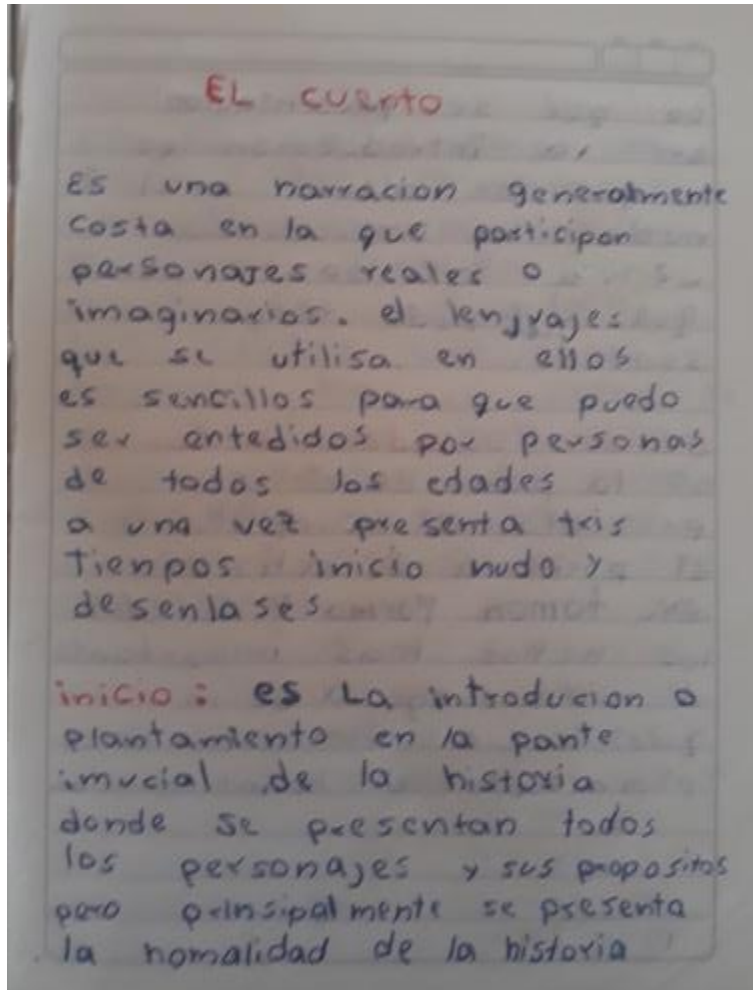 EL cuento
Es una narracion generalmente
costa en la que participan
personajes reales o
imaginarios. el lenjuajes
que se utilisa en ellos
es sencillos para que puedo
ser entedidos por personas
de todos los edades
a una vez presenta tres
Tienpos inicio nudo y
desenlases
inicio: es La introducion o
plantamiento en la pante
imucial de la historia
donde se presentan todos
los personajes y sus propositos
pero prinsipalmente se presenta
la nomalidad de la historia